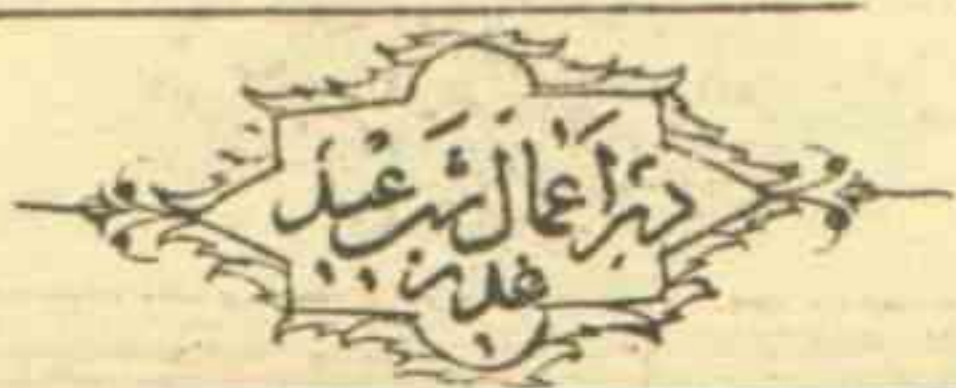 در اعمال شب عيد
غدير